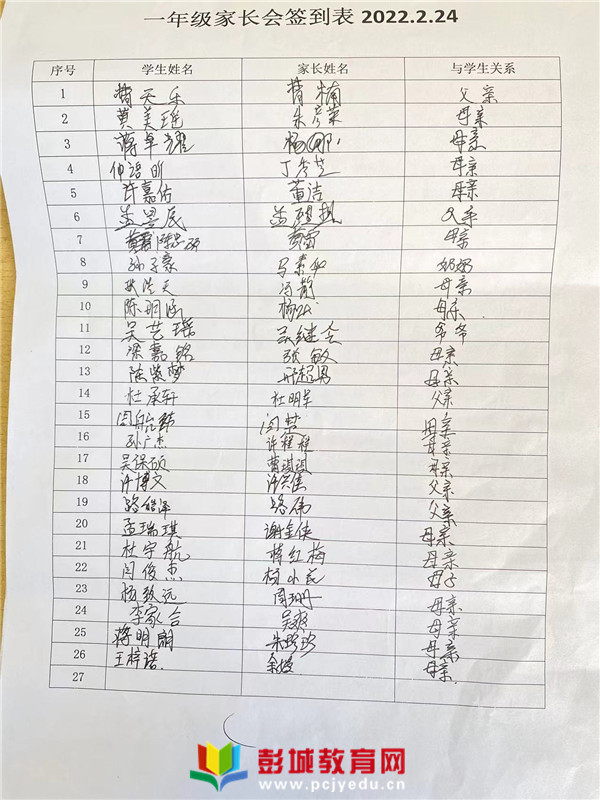 一年级家长会签到表 2022.2.24
序号 学生姓名 家长姓名 与学生关系
1 曹天乐 曹楠 父亲
2 黄美瑶 朱彦荣 母亲
3 蒋卓耀 杨娜 母亲
4 仲语昕 丁秀芝 母亲
5 许嘉佑 董洁 母亲
6 孟昱辰 父子
7 母亲
8 孙子豪 马素仙 奶奶
9 冯静 母亲
10 陈玥涵 母亲
11 吴艺瑶 吴继全 爷爷
12 梁嘉铭 张敏 母亲
13 陈紫梦 邢超男 母亲
14 杜承轩 杜明军 父亲
15 闫航玮 闫梦 母亲
16 孙广杰 许程程 母亲
17 吴保硕 曹琪琪 母亲
18 许博文 父亲
19 路皓泽 路伟 父亲
20 孟瑞琪 谢金侠 母亲
21 杜宇航 蒋红梅 母亲
22 闫俊杰 杨小花 母子
23 杨致远 周珊 母亲
24 李家合 吴爽 母亲
25 蒋明朗 朱珍珍 母亲
26 王梓语 母亲
27
彭城教育网
www.pcjyedu.cn